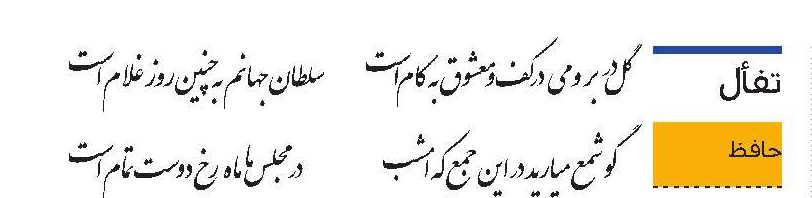 تفأل
حافظ
گل در بر و می در کف و معشوق به کام است
سلطان جهانم به چنین روز غلام است
گو شمع میارید در این جمع که امشب
در مجلس ما ماه رخ دوست تمام است